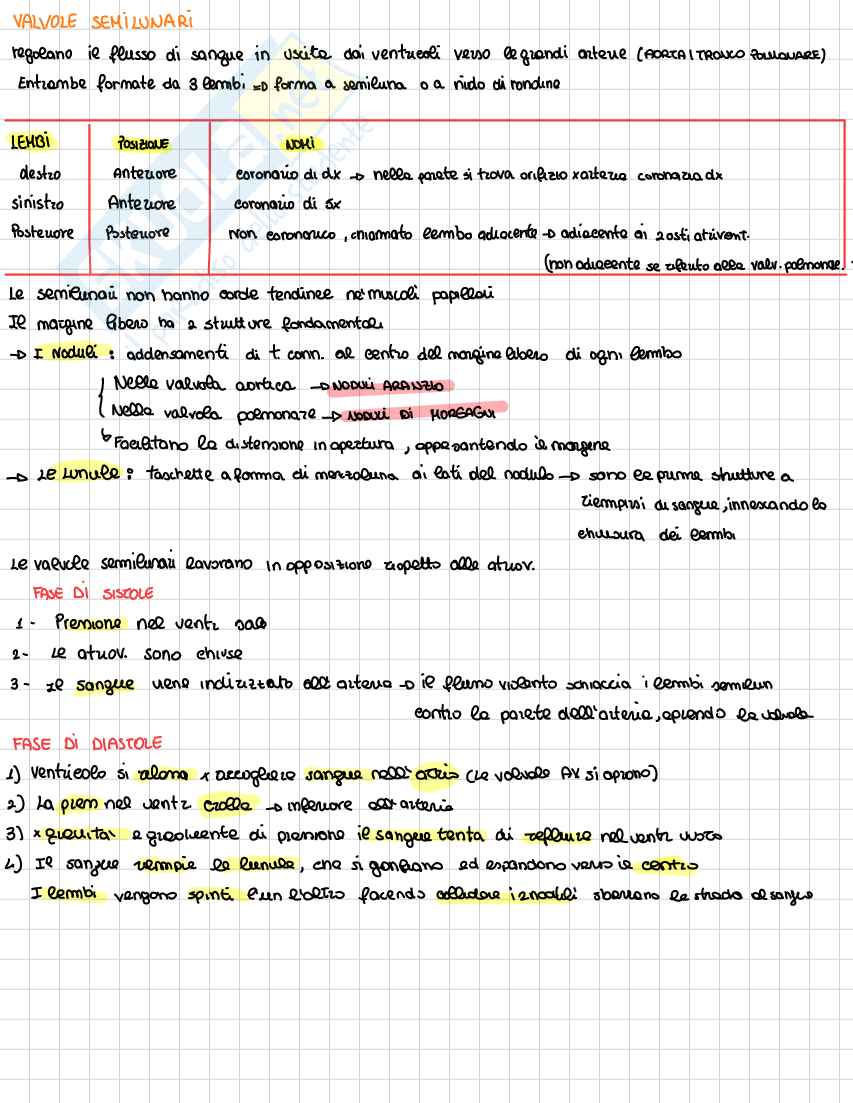 VALVOLE SEMILUNARI
regolano il flusso di sangue in uscita dai ventricoli verso le grandi arterie (AORTA/TRONCO POLMONARE)
Entrambe formate da 3 lembi => forma a semiluna o a nido di rondine
LEMBI POSIZIONE NOMI
destro Anteriore coronario di dx → nella parete si trova orifizio x arteria coronaria dx
sinistro Anteriore coronario di sx
Posteriore Posteriore Non coronarico, chiamato lembo adiacente → adiacente ai 2 osti atrivent.
(non adiacente se riferito alla valv. polmonare.
Le semilunari non hanno corde tendinee né muscoli papillari
Il margine libero ha 2 strutture fondamentali
→ I Noduli : addensamenti di t conn. al centro del margine libero di ogni lembo
Nella valvola aortica → NODULI ARANZIO
Nella valvola polmonare → NODULI DI MORGAGNI
↳ Facilitano la distensione in apertura, appesantendo il margine
→ Le Lunule : taschette a forma di mezzaluna ai lati del nodulo → sono le prime strutture a
riempirsi di sangue, innescando la
chiusura dei lembi
Le valvole semilunari lavorano in opposizione rispetto alle atriov.
FASE DI SISTOLE
1 - Pressione nel ventr sale
2 - Le atriov. sono chiuse
3 - Il sangue viene indirizzato all'arteria → il flusso violento schiaccia i lembi semilun
contro la parete dell'arteria, aprendo la valvola
FASE DI DIASTOLE
1) Ventricolo si rilassa x accogliere sangue nell'atrio (Le valvole AV si aprono)
2) La press nel ventr crolla → inferiore all'arteria
3) x gravità e gradiente di pressione il sangue tenta di refluire nel ventr vuoto
4) Il sangue riempie le lunule, che si gonfiano ed espandono verso il centro
I lembi vengono spinti l'un l'altro facendo collidere i 2 noduli sbarrano la strada al sangue